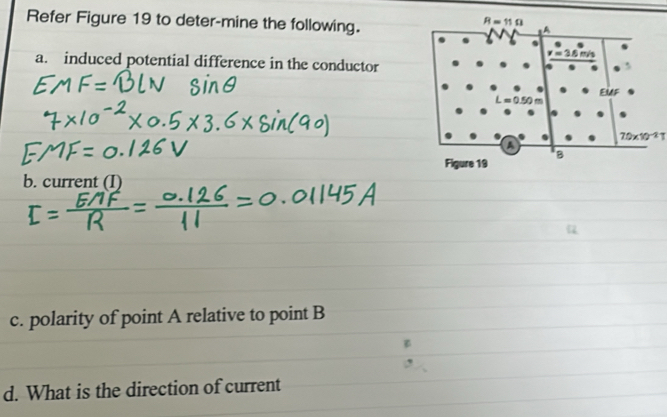 Refer Figure 19 to deter-mine the following.
a. induced potential difference in the conductor
EMF = BLV sinθ
7×10⁻² × 0.5 × 3.6 × sin(90)
EMF = 0.126 V
b. current (I)
I = EMF/R = 0.126/11 = 0.01145 A
c. polarity of point A relative to point B
d. What is the direction of current
R = 11 Ω
A
v = 3.6 m/s
EMF
L = 0.50 m
7.0×10⁻² T
A
B
Figure 19